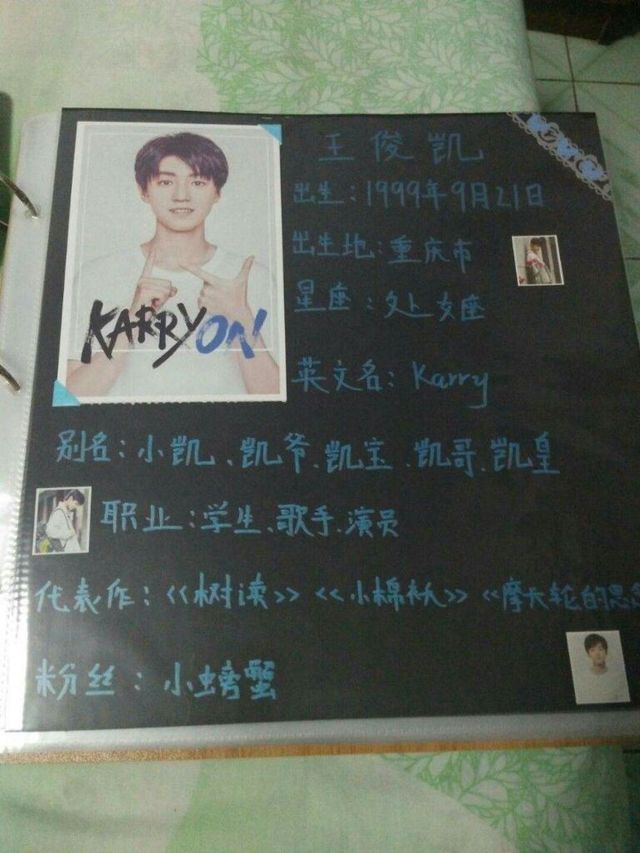 KARRY ON
王俊凯
出生：1999年9月21日
出生地：重庆市
星座：处女座
英文名：Karry
别名：小凯、凯爷、凯宝、凯哥、凯皇
职业：学生、歌手、演员
代表作：《树读》《小棉袄》《摩天轮的思
粉丝：小螃蟹